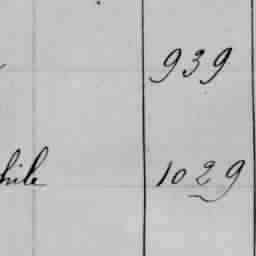 939
hile 1029